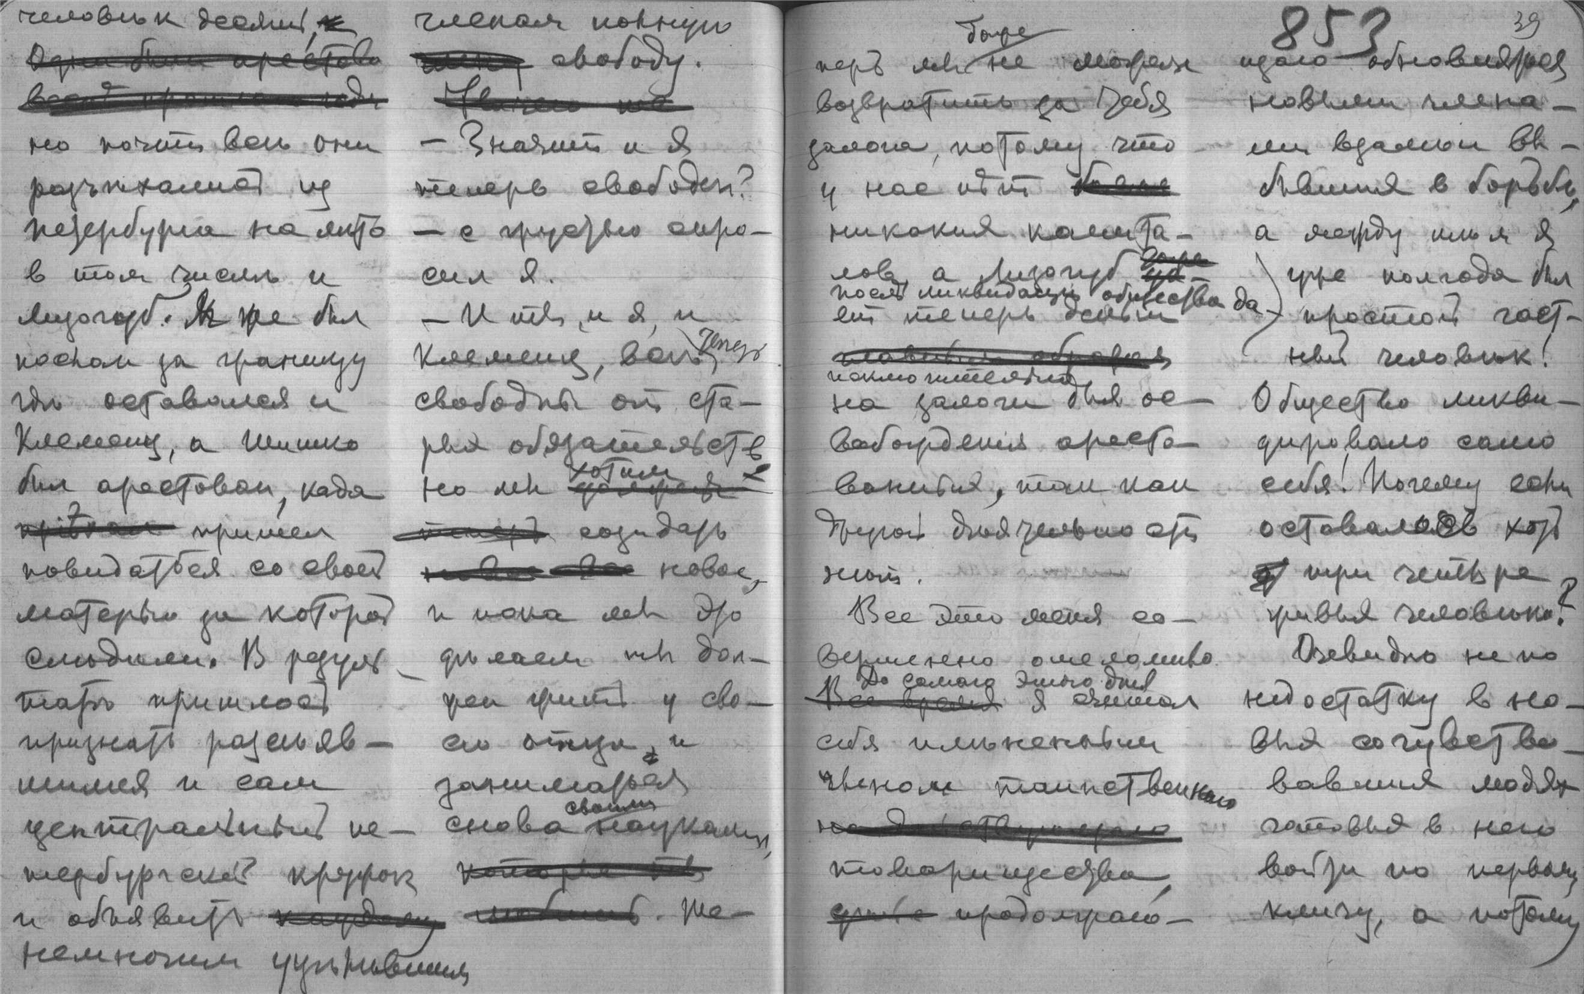 человѣк десять,
Одни были арестова
но почти всѣ они
разъѣхались из
Петербурга на лѣто
в том числѣ и
Лизогуб. Я же был
послан за границу
гдѣ оставался и
Клеменц, а Шишко
был арестован, когда
пришел
повидаться со своей
матерью за которой
слѣдили. В резуль-
татѣ пришлось
признать разсѣяв-
шимся и сам
центральный пе-
тербургский кружок
и объявить каждому
немногим уцѣлѣвшим
членам полную
свободу.
— Значит и я
теперь свободен?
— с грустью спро-
сил я.
— И ты, и я, и
Клеменц, всѣ теперь
свободны от ста-
рых обязательств
но мы хотим
создать
новое,
и пока мы это
дѣлаем ты дол-
жен жить у сво-
его отца и
заниматься
снова своими науками,
. Те-
853
39
перь мы не можем болѣе
возвратить за тебя
залога, потому что
у нас нѣт
никаких капита-
лов, а Лизогуб
послѣ ликвидации общества да-
ет теперь деньги
исключительно
на залоги для ос-
вобождения аресто-
ванных, так как
другой дѣятельности
нѣт.
Все это меня со-
вершенно ошеломило.
До самого этого дня
Все время я считал
себя плѣненным
членом таинственного
товарищества,
продолжаю-
щаго обновляться
новыми члена-
ми взамѣн вы-
бывших в борьбѣ,
а между тѣм я
уже полгода был
простой част-
ный человѣк!
Общество ликви-
дировало само
себя! Почему если
оставалось хоть
три четыре
живых человѣка?
Очевидно не по
недостатку в но-
вых сочувство-
вавших людях
готовых в него
войти по первому
кличу, а потому